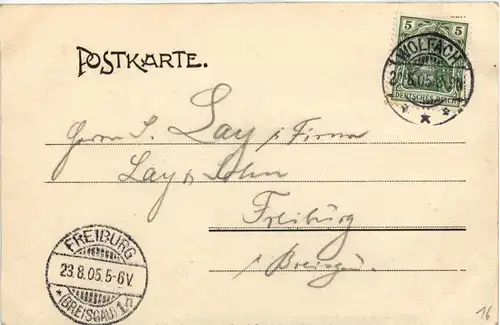 POSTKARTE.
5
DEUTSCHES REICH
WOLFACH
8.05.
Herrn S. Lay i/Firma
Lay & Sohn
Freiburg
i/Breisgau
FREIBURG
23.8.05.5-6V.
*(BREISGAU)1.n
16